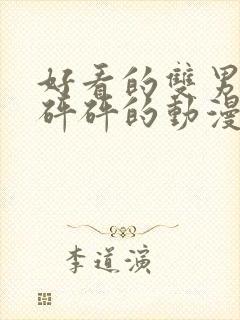 好看的雙男
砰砰的動漫
李道演